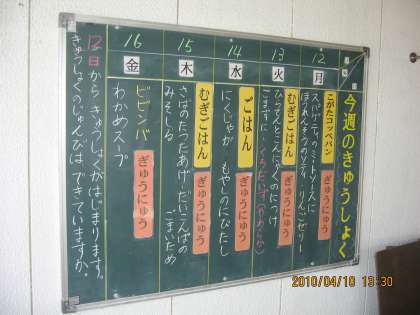 今週のきゅうしょく
12
月
こがたコッペパン
ぎゅうにゅう
スパゲティのミートソースに
ほうれんそうのソティ りんごゼリー
13
火
むぎごはん
ぎゅうにゅう
ひりょうずとこんにゃくのにつけ
ごまずに くろだいず
14
水
ごはん
ぎゅうにゅう
にくじゃが もやしのにびたし
15
木
むぎごはん
ぎゅうにゅう
さばのたつたあげ だいこんばの
ごまいため
みそしる
16
金
ビビンバ
ぎゅうにゅう
わかめスープ
12日から きゅうしょくがはじまります。
きゅうしょくのじゅんびは できていますか。
2010/04/10 13:30